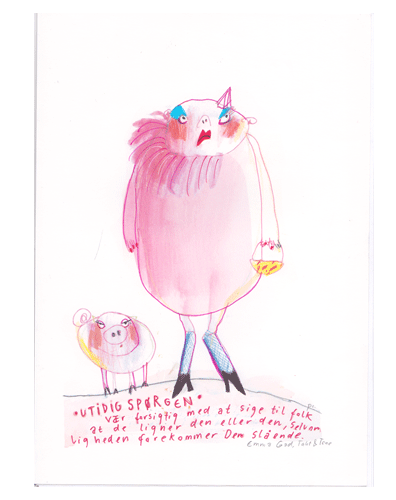 "UTIDIG SPØRGEN"
Vær forsigtig med at sige til folk
at de ligner den eller den, selvom
ligheden forekommer Dem slående.
Emma Gad